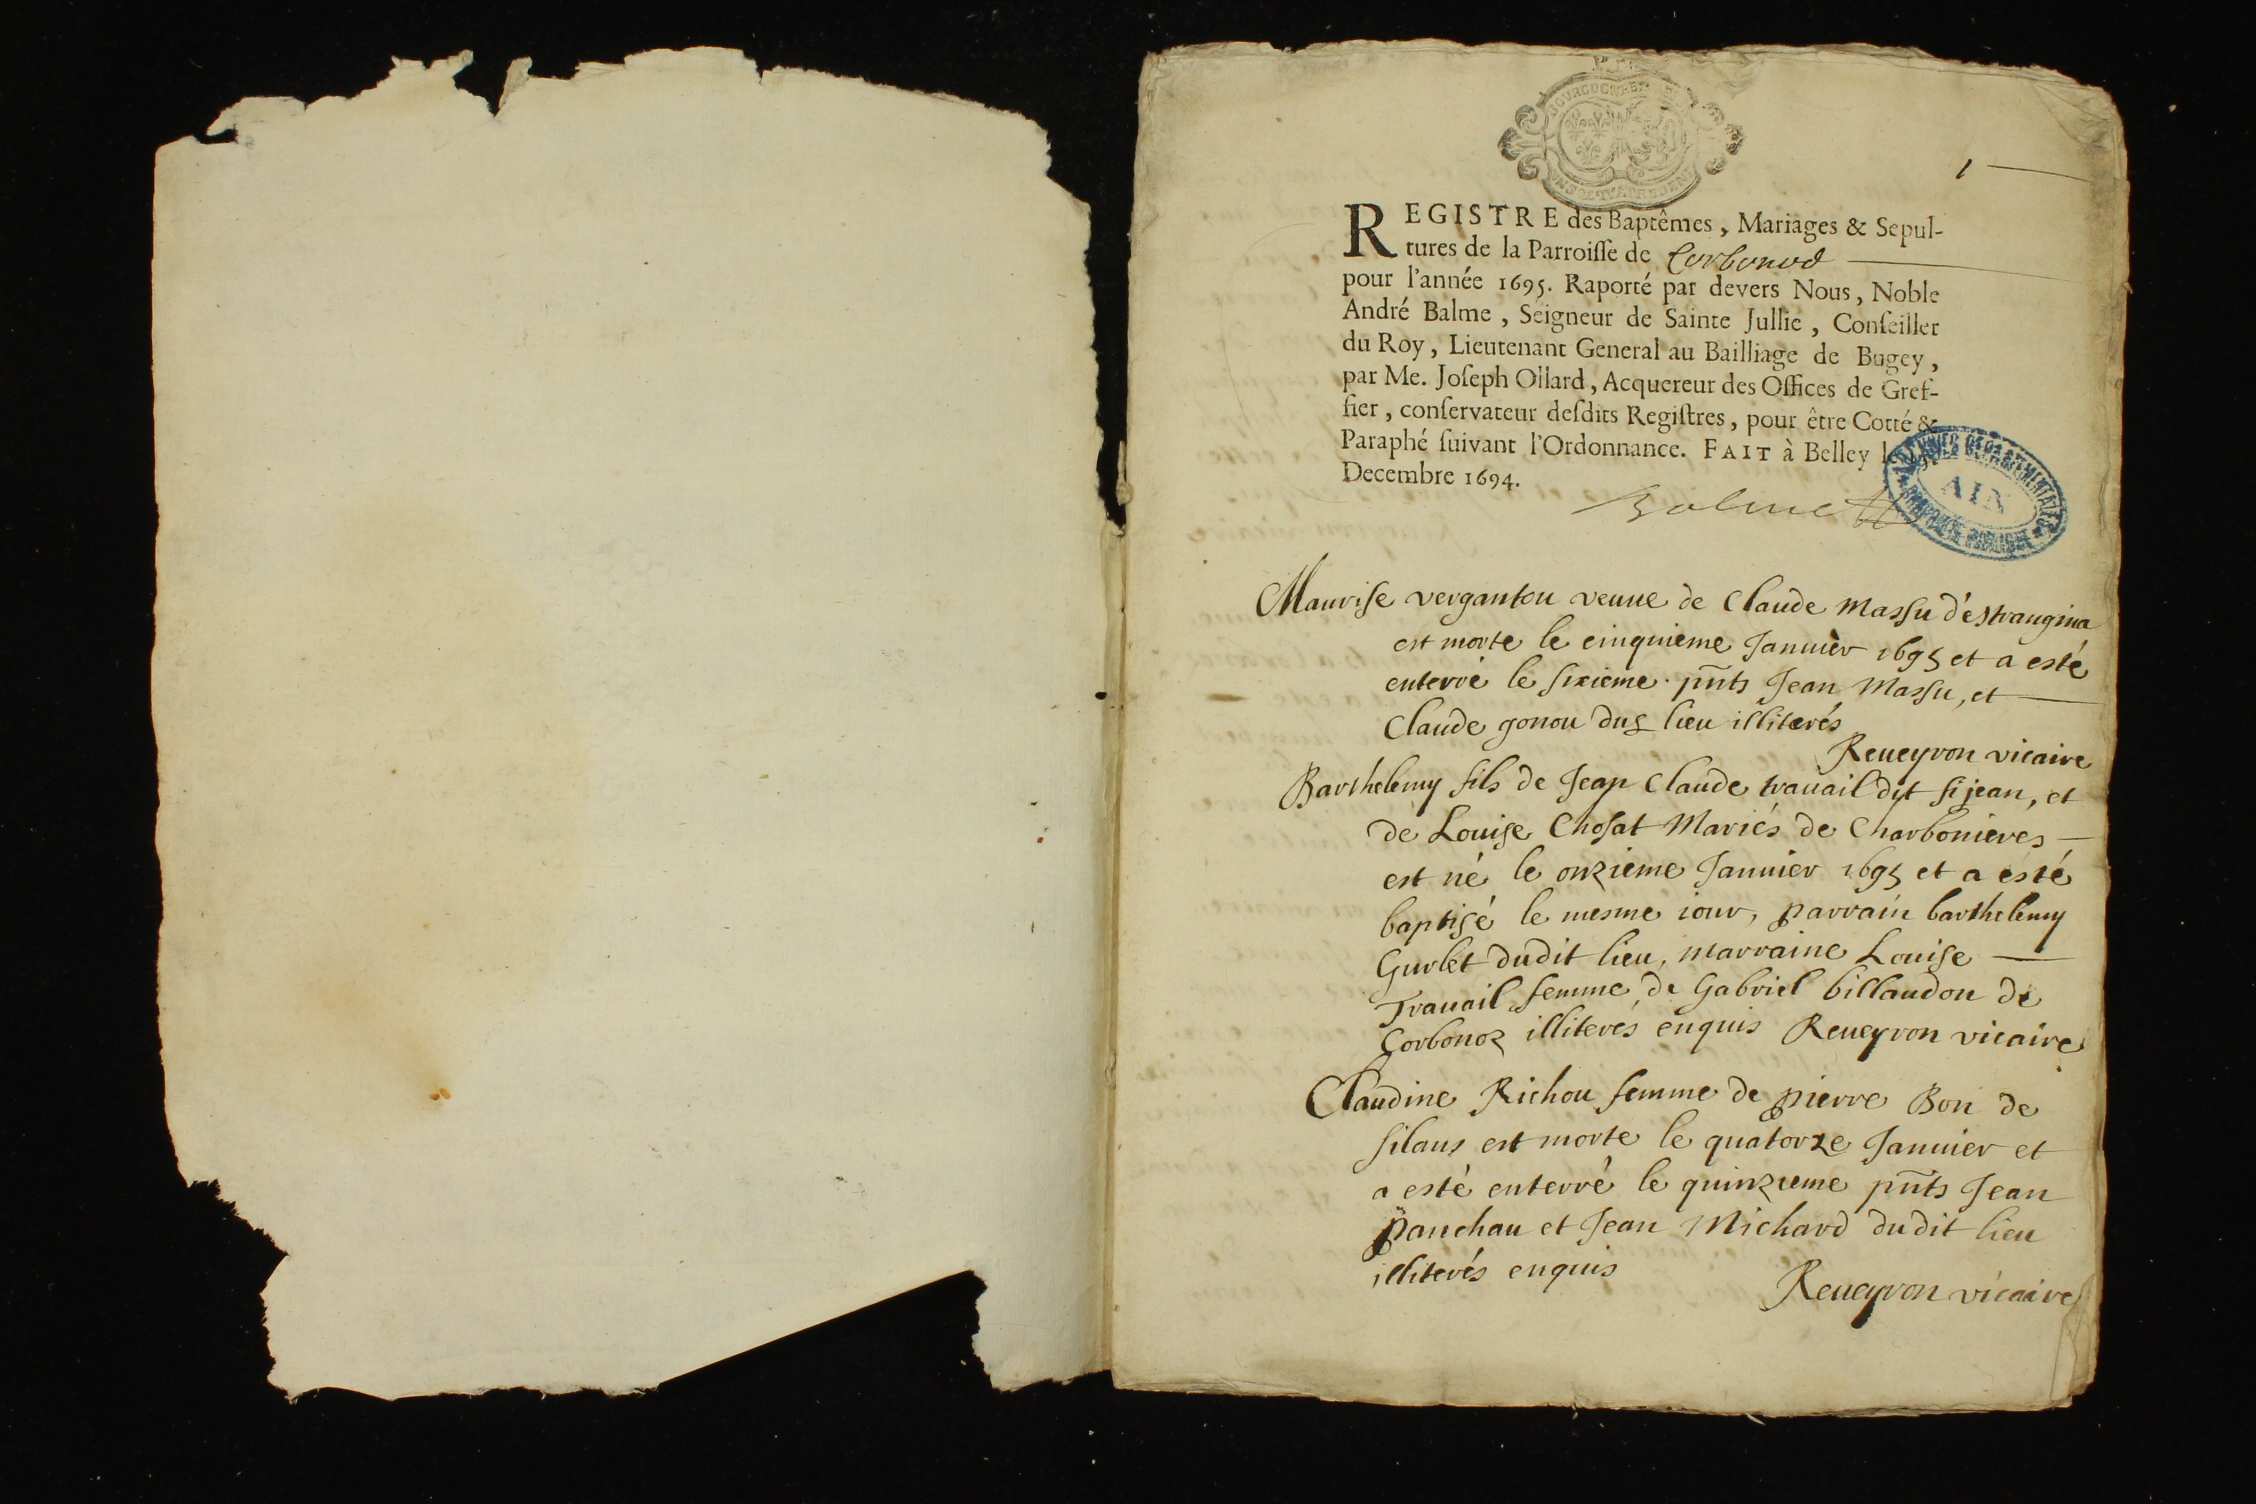 1
REGISTRE des Baptêmes, Mariages & Sepul-
tures de la Parroisse de Corbonod
pour l'année 1695. Raporté par devers Nous, Noble
André Balme, Seigneur de Sainte Jullie, Conseiller
du Roy, Lieutenant General au Bailliage de Bugey,
par Me. Joseph Ollard, Acquereur des Offices de Gref-
fier, conservateur desdits Registres, pour être Cotté &
Paraphé suivant l'Ordonnance. FAIT à Belley le
Decembre 1694.
Balme
ARCHIVES DEPARTEMENTALES
AIN
Maurise vergantou veuue de Claude Massu d'estrangina
est morte le cinquieme Januièr 1695 et a esté
enterré le sixieme pnts Jean Massu, et
Claude gonou dud lieu illiterés
Reueyron vicaire
Barthelemy fils de Jean Claude trauail dit fijean, et
de Louise Chosat Mariés de Charbonieres
est né le onzieme Januier 1695 et a esté
baptisé le mesme iour, parrain barthelemy
Gurlet dudit lieu, marraine Louise
Trauail femme de Gabriel billaudon de
Corbonoz illiterés enquis Reueyron vicaire
Claudine Richou femme de pierre Bon de
silans est morte le quatorze Januier et
a esté enterré le quinzieme pnts Jean
panchau et Jean Michard dudit lieu
illiterés enquis
Reueyron vicaire